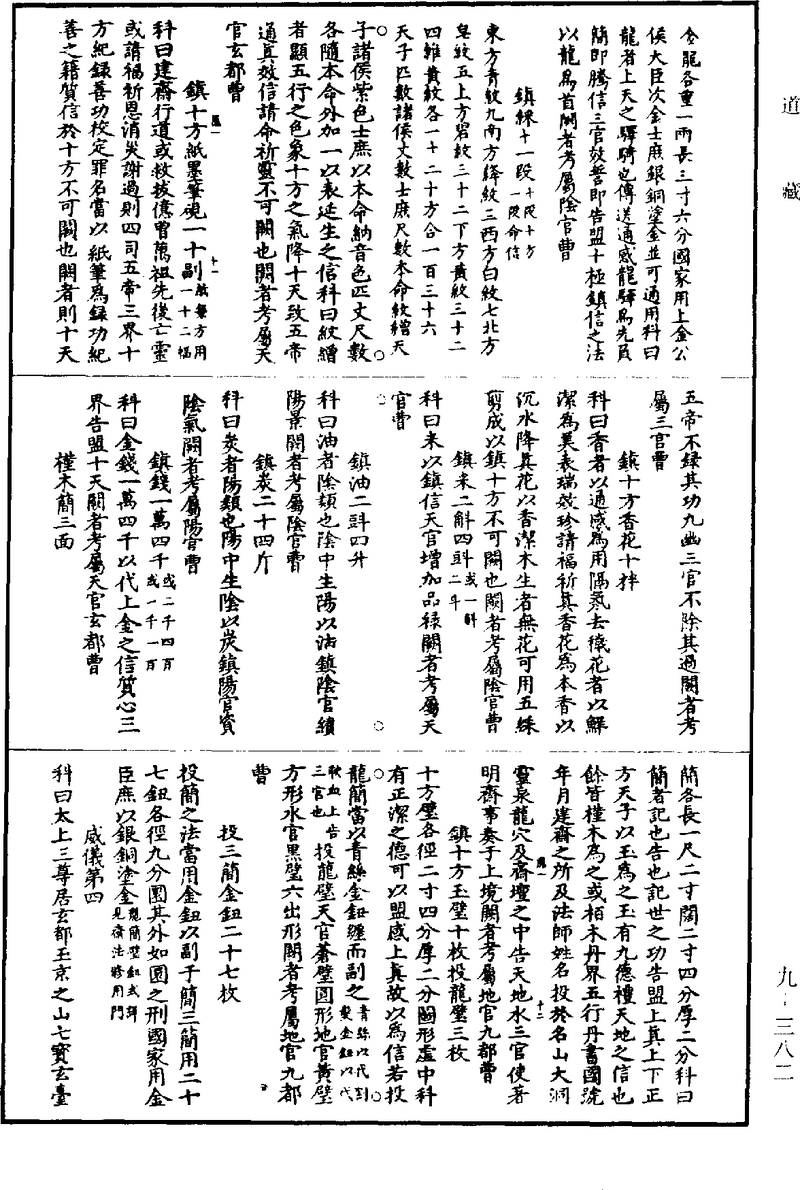 道藏
金龍各重一兩長三寸六分國家用上金公
侯大臣次金士庶銀銅塗金並可通用科曰
龍者上天之驛騎也傳送通感龍驛為先負
簡即騰信三官效誓即告盟十極鎮信之法
以龍為首闕者考屬陰官曹
鎮綵十一段十段十方一段命信
東方青紋九南方絳紋三西方白紋七北方
皂紋五上方碧紋三十二下方黃紋三十二
四維黃紋各一十二十方合一百三十六
天子匹數諸侯丈數士庶尺數本命紋繒天
子諸侯紫色士庶以本命納音色匹丈尺數
各隨本命外加一以表延生之信科曰紋繒
者顯五行之色象十方之氣降十天致五帝
通真效信請命祈靈不可闕也闕者考屬天
官玄都曹
鎮十方紙墨筆硯一十副紙每方用一十二幅
科曰建齋行道或救拔億曾萬祖先後亡靈
或請福祈恩消災謝過則四司五帝三界十
方紀録善功校定罪名當以紙筆為録功紀
善之籍質信於十方不可闕也闕者則十天
五帝不録其功九幽三官不除其過闕者考
屬三官曹
鎮十方香花十拌
科曰香者以通感為用隔氛去穢花者以鮮
潔為美表瑞效珍請福祈真香花為本香以
沉水降真花以香潔木生者無花可用五綵
剪成以鎮十方不可闕也闕者考屬陰官曹
鎮米二斛四㪷或一斛二斗
科曰米以鎮信天官增加品祿闕者考屬天
官曹
鎮油二㪷四升
科曰油者陰類也陰中生陽以油鎮陰官續
陽景闕者考屬陰官曹
鎮炭二十四斤
科曰炭者陽類也陽中生陰以炭鎮陽官資
陰氣闕者考屬陽官曹
鎮錢一萬四千或二千四百或一千一百
科曰金錢一萬四千以代上金之信質心三
界告盟十天闕者考屬天官玄都曹
槿木簡三面
簡各長一尺二寸闊二寸四分厚二分科曰
簡者記也告也記世之功告盟上真上下正
方天子以玉為之玉有九德禮天地之信也
餘皆槿木為之或栢木丹界五行丹書國號
年月建齋之所及法師姓名投於名山大洞
靈泉龍穴及齋壇之中告天地水三官使著
明齋事奏于上境闕者考屬地官九都曹
鎮十方玉璧十枚投龍璧三枚
十方璧各徑二寸四分厚二分圓形虛中科
有正潔之德可以盟感上真故以為信若投
龍簡當以青絲金鈕纏而副之青絲以代割髮金鈕以代
歃血上告三官也投龍璧天官蒼璧圓形地官黃璧
方形水官黑璧六出形闕者考屬地官九都
曹
投三簡金鈕二十七枚
投簡之法當用金鈕以副于簡三簡用二十
七鈕各徑九分圓其外如圜之形國家用金
臣庶以銀銅塗金龍簡璧鈕式詳見齋法修用門
威儀第四
科曰太上三尊居玄都玉京之山七寶玄臺
九-三八二